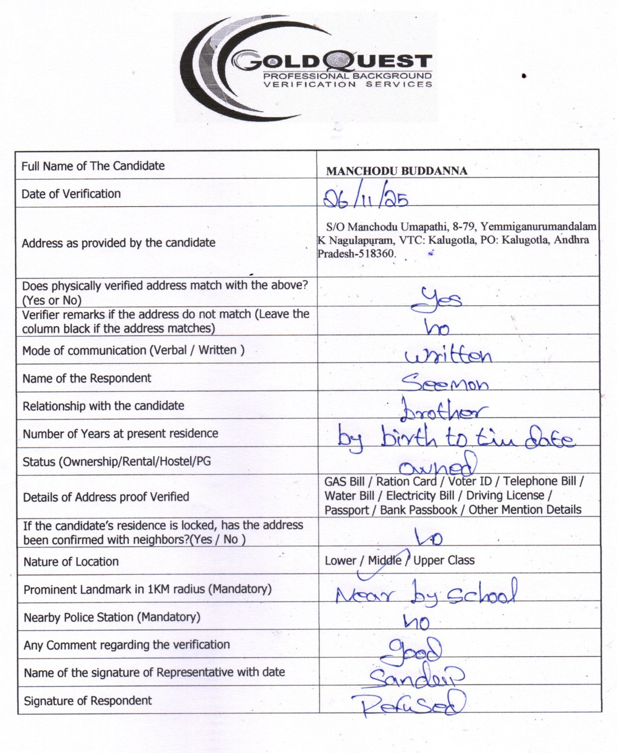 GOLDQUEST
PROFESSIONAL BACKGROUND
VERIFICATION SERVICES
Full Name of The Candidate
MANCHODU BUDDANNA
Date of Verification
26/11/25
Address as provided by the candidate
S/O Manchodu Umapathi, 8-79, Yemmiganurumandalam
K Nagulapuram, VTC: Kalugotla, PO: Kalugotla, Andhra
Pradesh-518360.
Does physically verified address match with the above?
(Yes or No)
Yes
Verifier remarks if the address do not match (Leave the
column black if the address matches)
no
Mode of communication (Verbal / Written )
written
Name of the Respondent
Seemon
Relationship with the candidate
brother
Number of Years at present residence
by birth to tiu date
Status (Ownership/Rental/Hostel/PG
owned
Details of Address proof Verified
GAS Bill / Ration Card / Voter ID / Telephone Bill /
Water Bill / Electricity Bill / Driving License /
Passport / Bank Passbook / Other Mention Details
If the candidate's residence is locked, has the address
been confirmed with neighbors?(Yes / No )
No
Nature of Location
Lower / Middle / Upper Class
Prominent Landmark in 1KM radius (Mandatory)
Near by school
Nearby Police Station (Mandatory)
no
Any Comment regarding the verification
good
Name of the signature of Representative with date
Sandeip
Signature of Respondent
Refused